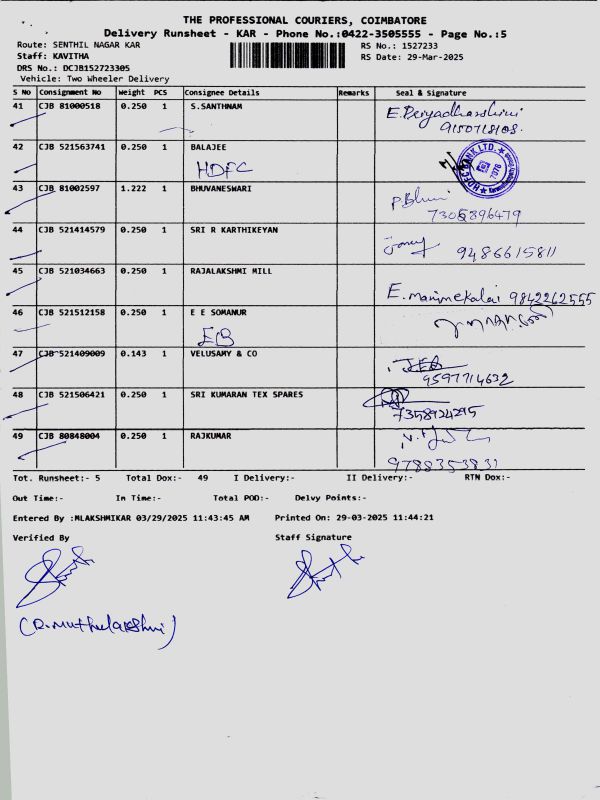 THE PROFESSIONAL COURIERS, COIMBATORE
Delivery Runsheet - KAR - Phone No.:0422-3505555 - Page No.:5
Route: SENTHIL NAGAR KAR RS No.: 1527233
Staff: KAVITHA RS Date: 29-Mar-2025
DRS No.: DCJB152723305
Vehicle: Two Wheeler Delivery
S No Consignment No Weight PCS Consignee Details Remarks Seal & Signature
41 CJB 81000518 0.250 1 S.SANTHNAM
9150718108.
42 CJB 521563741 0.250 1 BALAJEE
HDFC
HDFC BANK LTD. 7076
43 CJB 81002597 1.222 1 BHUVANESWARI
7305896479
44 CJB 521414579 0.250 1 SRI R KARTHIKEYAN
9486615811
45 CJB 521034663 0.250 1 RAJALAKSHMI MILL
E. manimekalai 9842262555
46 CJB 521512158 0.250 1 E E SOMANUR
EB
47 CJB 521409009 0.143 1 VELUSAMY & CO
9597714632
48 CJB 521506421 0.250 1 SRI KUMARAN TEX SPARES
7358924295
49 CJB 80848004 0.250 1 RAJKUMAR
9788353831
Tot. Runsheet:- 5 Total Dox:- 49 I Delivery:- II Delivery:- RTN Dox:-
Out Time:- In Time:- Total POD:- Delvy Points:-
Entered By :MLAKSHMIKAR 03/29/2025 11:43:45 AM Printed On: 29-03-2025 11:44:21
Verified By Staff Signature